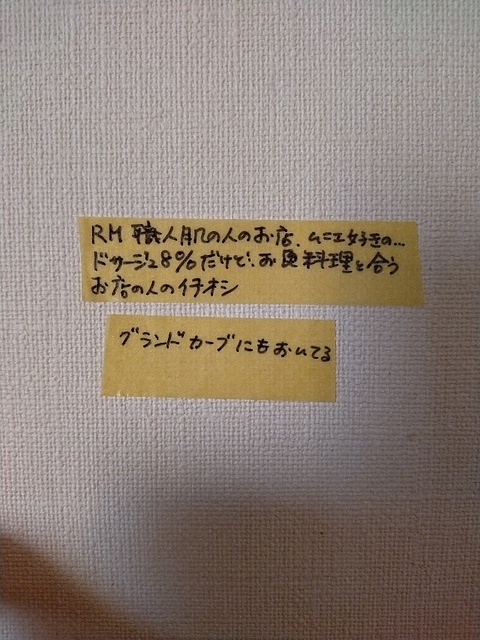 RM 職人肌の人のお店、ムニエ好きの…
ドサージュ8%だけど、お魚料理と合う
お店の人のイチオシ
グランドカーブにもおいてる